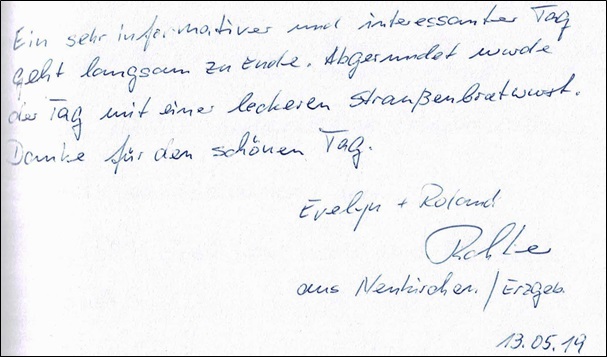 Ein sehr informativer und interessanter Tag
geht langsam zu Ende. Abgerundet wurde
der Tag mit einer leckeren Straußenbratwurst.
Danke für den schönen Tag.
Evelyn + Roland
aus Neukirchen / Erzgeb.
13.05.19